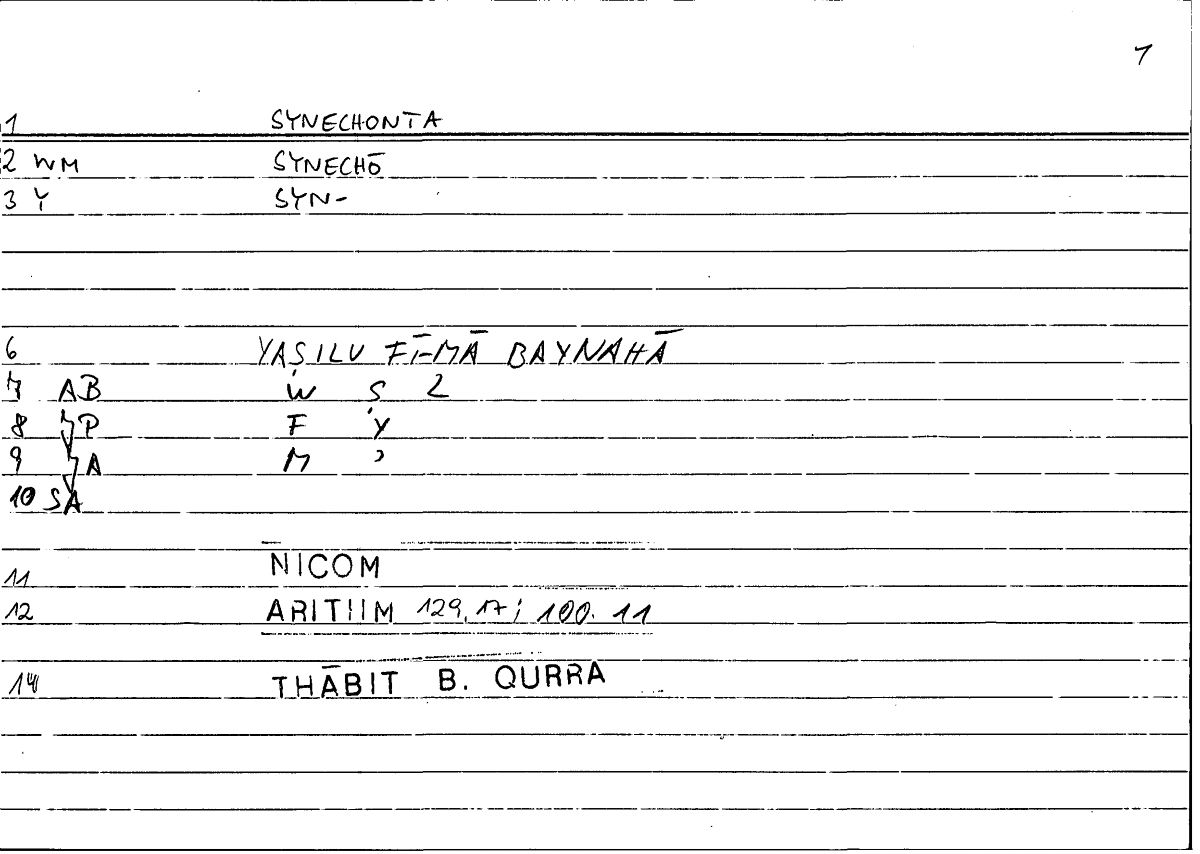 1
1 SYNECHONTA
2 WM SYNECHŌ
3 Y SYN-
6 YAṢILU FĪ-MĀ BAYNAHĀ
7 AB W Ṣ L
8 P F Y
9 A M ʾ
10 SA
11 NICOM
12 ARITIIM 129,17; 100.11
14 THĀBIT B. QURRA